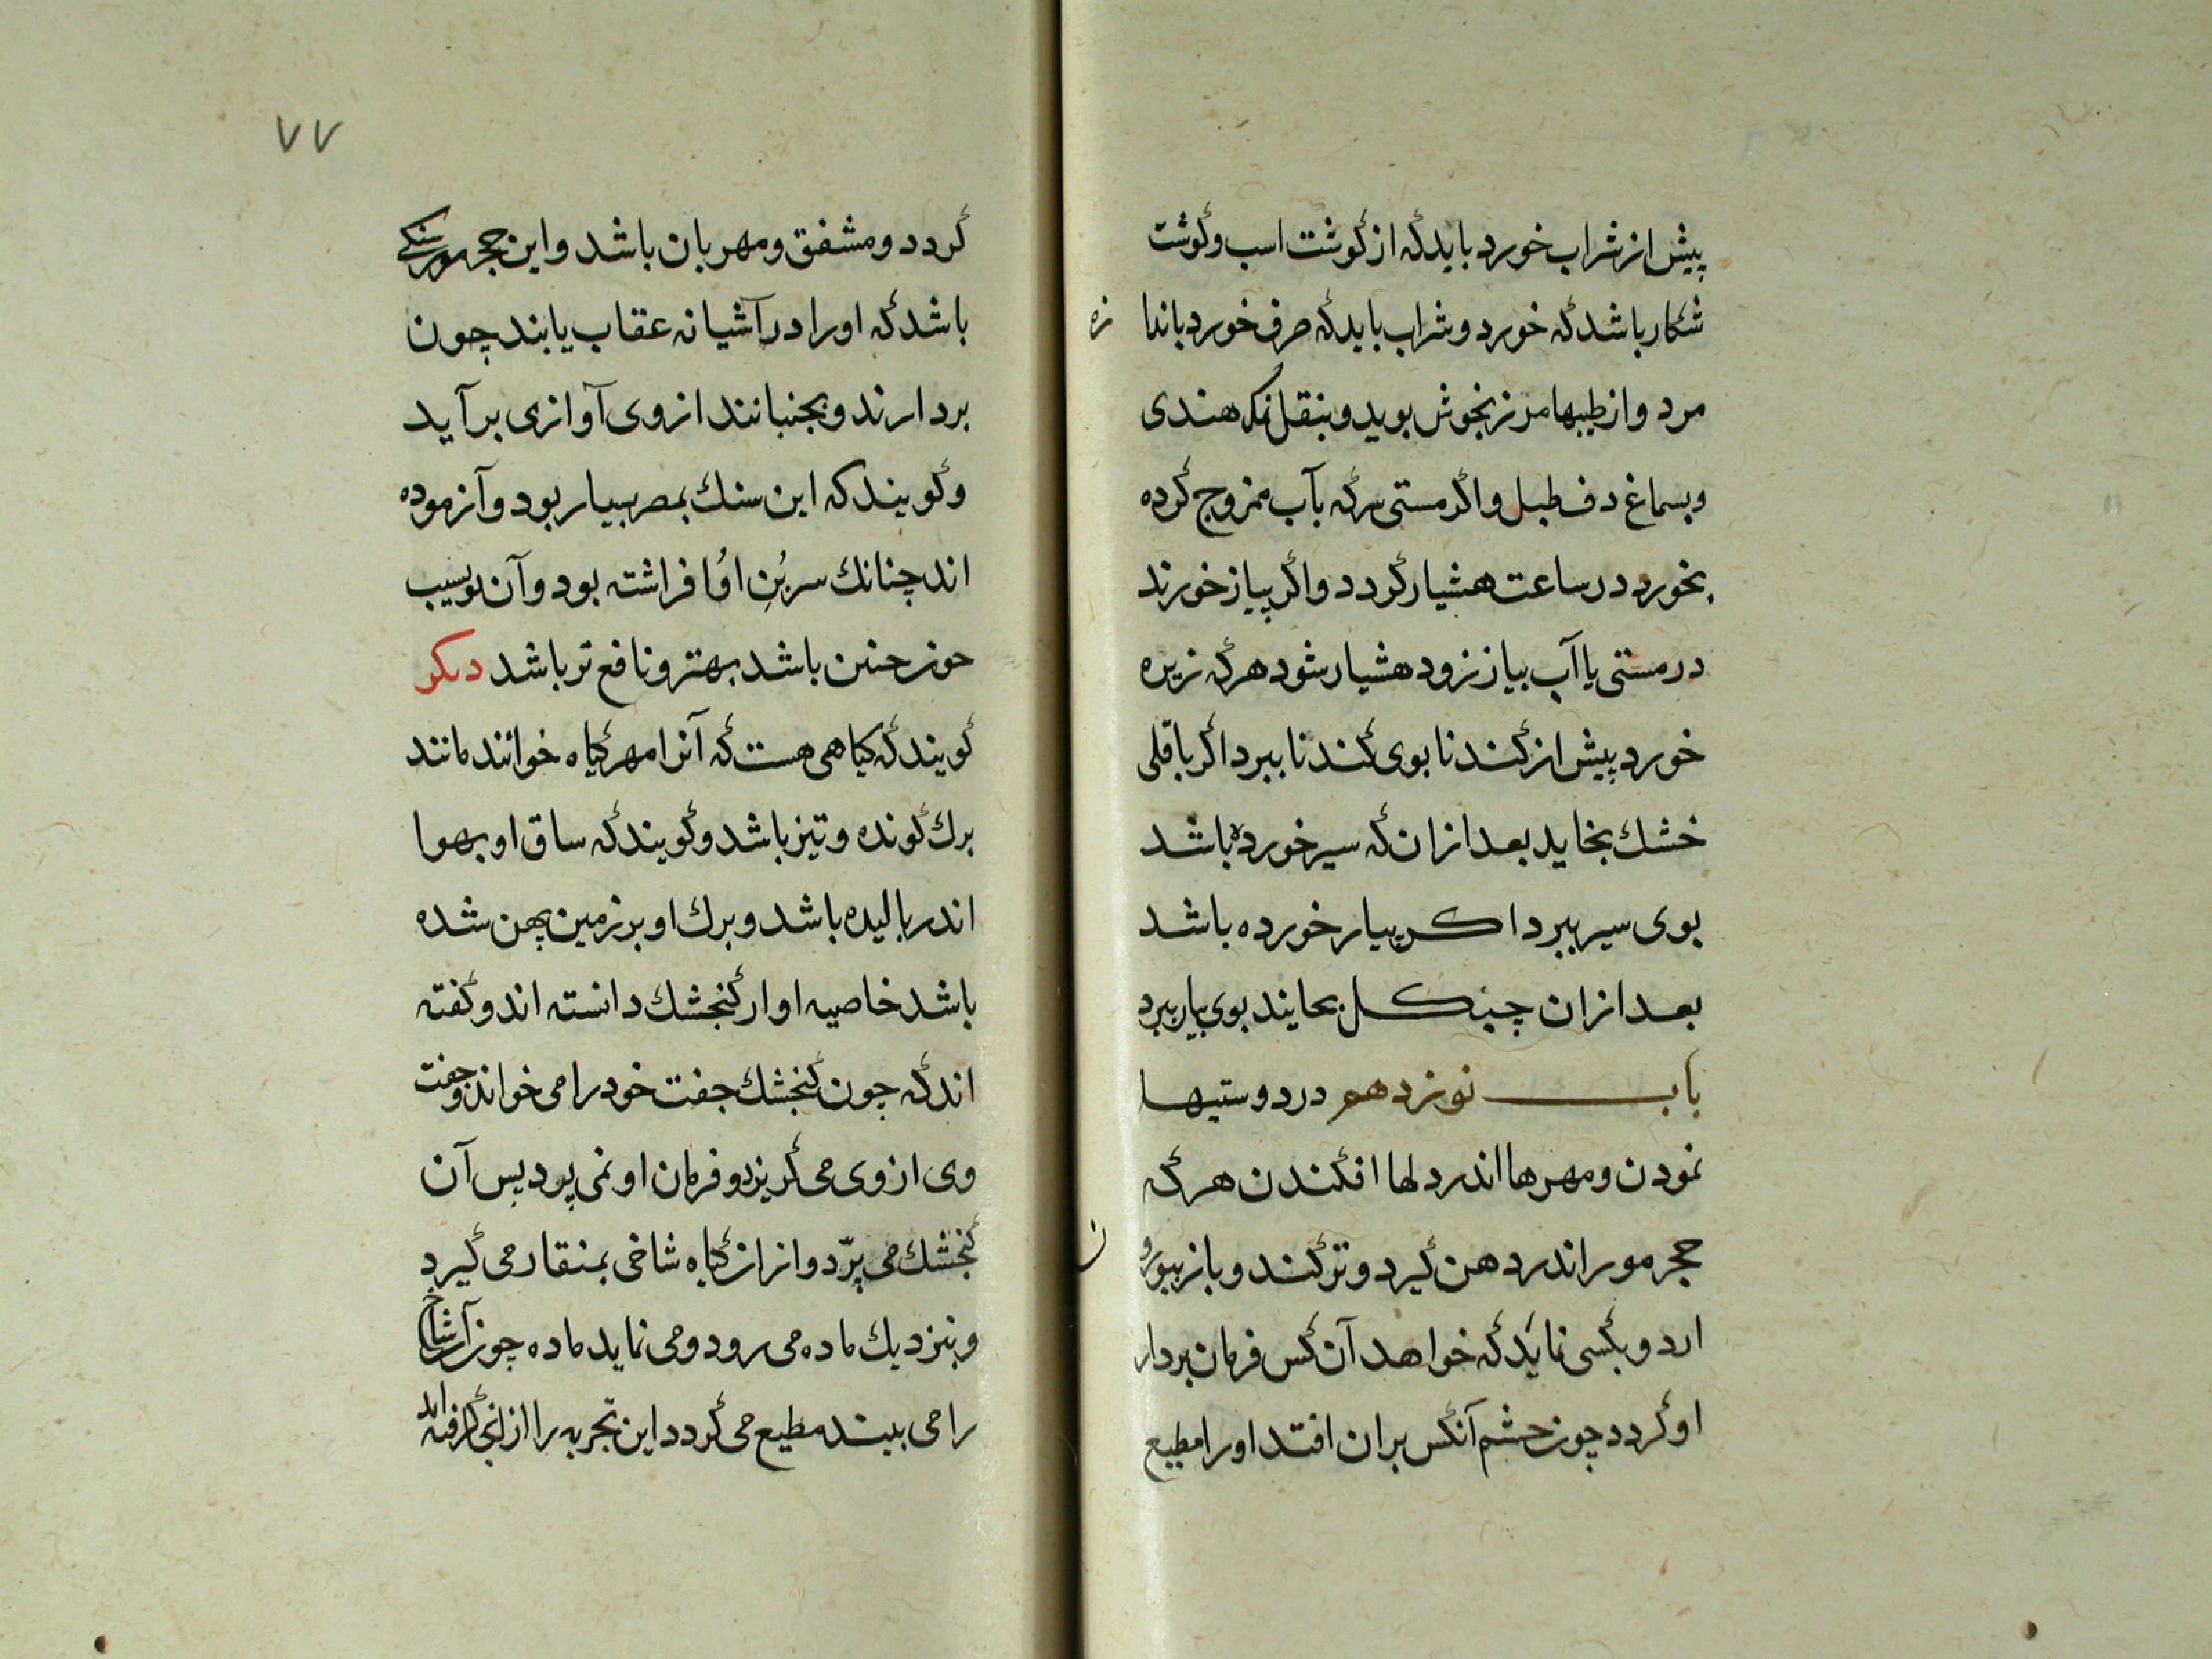 پیش از شراب خورد باید که از گوشت اسب و گوشت
شکار باشد که خورد و شراب باید که صرف خورد باندازه
مرد و از طیبها مرزنجوش بوید و بنقل نمک هندی
و بسماغ دف طبل و اگر مستی سرکه بآب ممزوج کرده
بخورد در ساعت هشیار گردد و اگر پیاز خورند
در مستی یا آب بیاز زود هشیار شود هر که زیره
خورد پیش از گندنا بوی گندنا ببرد اگر باقلی
خشك بخاید بعد از ان که سیر خورده باشد
بوی سیر ببرد اگر بیار خورده باشد
بعد از ان بحایند بوی بیار ببرد
باب نوزدهم در دوستیها
نمودن و مهرها اندر دلها افکندن هر که
حجر مور اندر دهن گیرد و تر کند و باز بیرون
ارد و بکسی نماید که خواهد آن کس فرمان بردار
او گردد چون حشم آنکس بر ان افتد او را مطیع
۷۷
گردد و مشفق و مهربان باشد و این حجر مور سنکی
باشد که او را در آشیانه عقاب یابند چون
بردارند و بجنبانند از وی آوازی بر آید
و گویند که این سنك بمصر بسیار بود و آزموده
اند چنانك سر بُنِ او افراشته بود و آن بوسیب
چون چنین باشد بهتر و نافع تر باشد دیکر
گویند که کیاهی هست که آنرا مهر گیاه خوانند مانند
برك گونده و تیز باشد و گویند که ساق او بهوا
اندر بالیده باشد و برك او بر زمین پهن شده
باشد خاصیه او از گنجشك دانسته اند و گفته
اند که چون گنجشك جفت خود را می خواند و جفت
وی از وی می گریزد و فرمان او نمی پرد پس آن
گنجشك می پرّد و انرا از گیاه شاخی بمنقار می گیرد
و بنزدیك ماده می رود و می نماید ماده چون آن شاخ
را می بیند مطیع می گردد این تجربه را از انجا گرفته اند